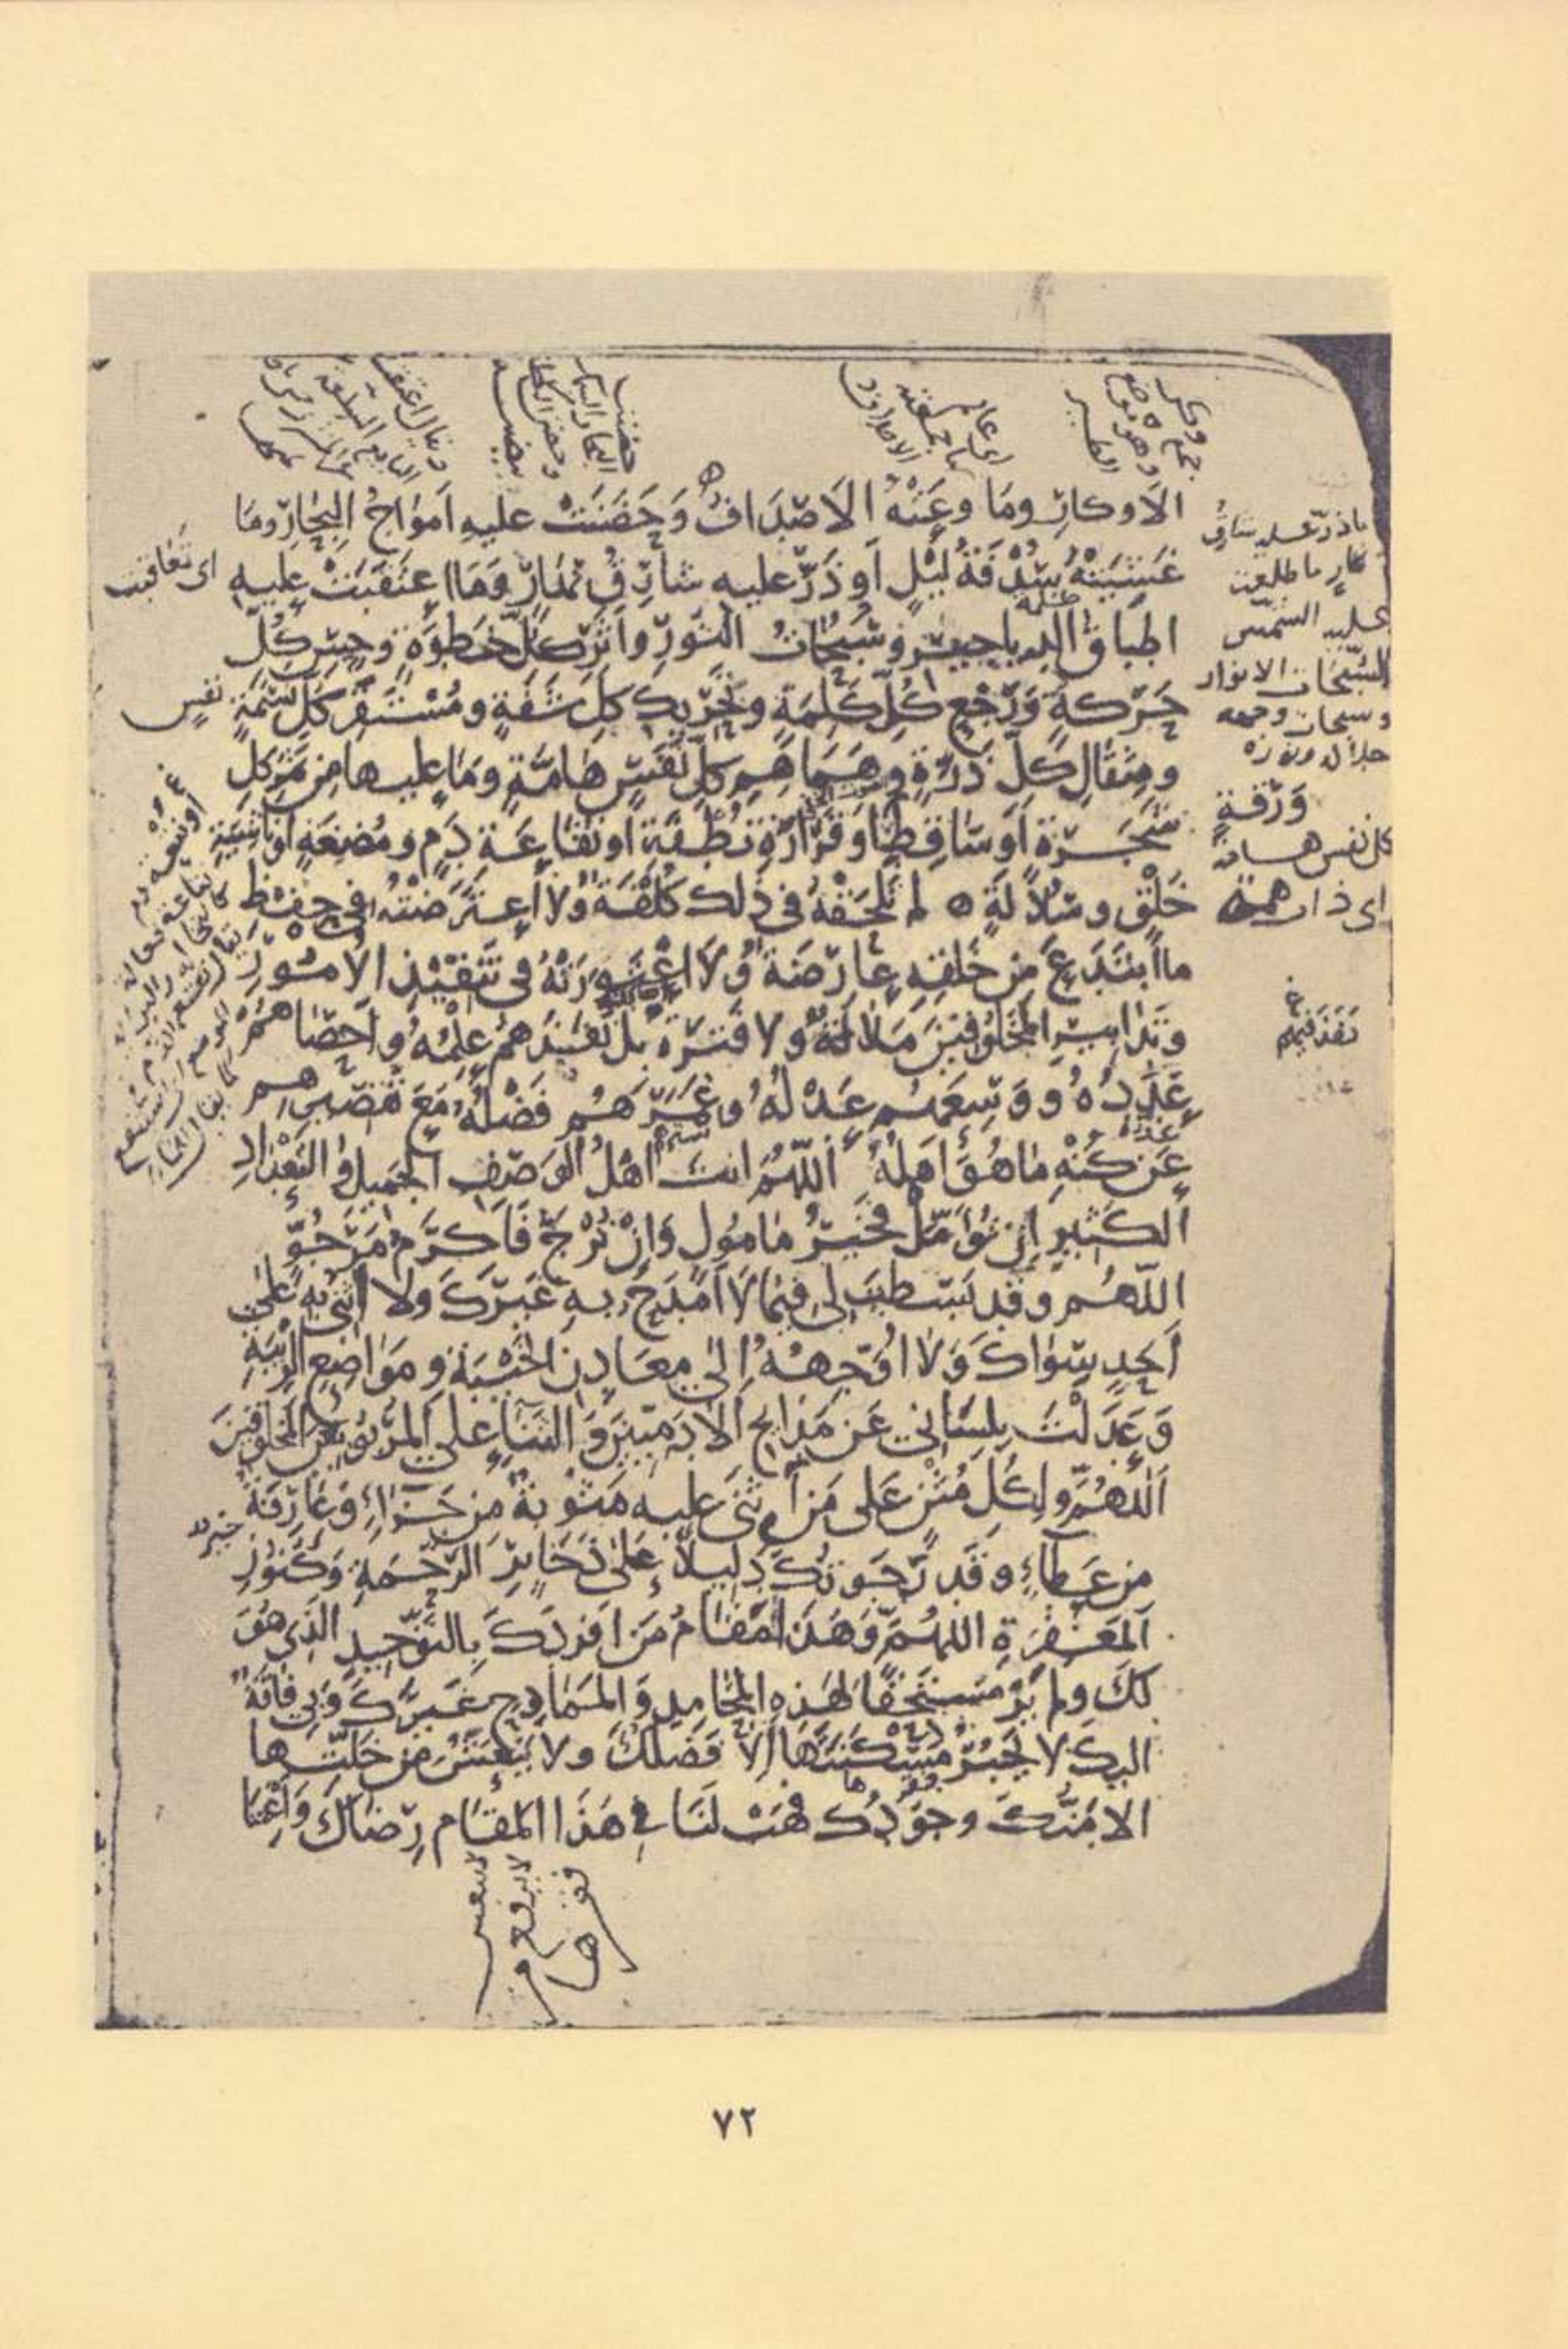 الاوكارِ وما وعَتْهُ الاَصْدَافُ وَحَضَنَتْ عليهِ اَمْوَاجُ البِحَارِ وما
غَشِيَتْهُ سُدْفَةُ لَيْلٍ اَو ذَرَّ عليه شارِقُ نَهَارٍ وَمَا اعْتَقَبَتْ عليهِ
اطباقُ الدياجيرِ وسُبُحَاتُ النّورِ واَثَرِ كلِّ خَطوَةٍ وحِسِّ كُلِّ
حَرَكةٍ وَرَجْعِ كُلِّ كَلِمَةٍ وتَحْرِيكِ كلِّ شَفَةٍ ومُسْتَقَرِّ كلِّ نَسَمَةٍ
ومِثقالِ كلِّ ذَرَّةٍ وهَمَاهِمِ كلِّ نَفْسٍ هامَّةٍ وَمَا عليها مِن ثَمَرِ
شَجَرَةٍ اَوسَاقِطِ اَوقَرَارَةِ نُطفَةٍ اَونُقَاعَةِ دَمٍ ومُضْغَةٍ اوناشِئَةِ
خَلْقٍ وسُلاَلَةٍ ٥ لم تَلْحَقْهُ في ذلك كُلْفَةٌ ولا اعتَرَضَتْهُ في حِفْظِ
ما ابْتَدَعَ مِن خَلقِهِ عارِضَةٌ وَلا اعْتَوَرَتْهُ في تَنْفِيْذِ الاُمُورِ
وتدابيرِ المخلوقينَ مَلاَلَةٌ ولا فَتْرَةٌ بل نَفَذَهُمْ عِلْمُهُ واَحصَاهُمْ
عَدَدُهُ وَوَسِعَهُم عَدْلُهُ وغَمَرَهُم فَضْلُهُ مَعَ تَقْصيرِهِم
عَن كُنْهِ ماهُوَ اَهلُهُ اَللّٰهُمَّ انتَ اَهْلُ الوَصْفِ الجميلِ والتَّعْدَادِ
الكثيرِ اِن تُؤَمَّلْ فخيرُ مَامُولٍ وَاِنْ تُرْجَ فَاَكرَمُ مَرْجُوٍّ
اللّٰهُم وقد بَسَطتَ لي فيمَا لاَ اَمْدَحُ بهِ غَيرَكَ ولا اُثْنِي بهِ عَلَى
اَحَدٍ سِوَاكَ وَلا اُوَجِّهُهُ اِلى معَادِنِ الخَيْبَةِ ومَوَاضِعِ الرِّيْبَةِ
وَعَدَلْتَ بِلِسَاني عَن مَدَايحِ الآدَمِيّينَ وَالثَّنَآءِ على المَرْبُوبينَ المخلوقينَ
اَللّٰهُمَّ ولِكُلِّ مُثْنٍ عَلى مَن اَثْنَى عليه مَثُوبَةٌ مِن جَزَآءٍ وعَارِفَةٌ
من عَطَآءٍ وقَد رَجَوتُكَ دَلِيلاً عَلَى ذَخَايرِ الرَّحْمَةِ وَكُنوزِ
اَلمَغْفِرَةِ اللهُمَّ وَهَذَا مَقَامُ مَن اَفرَدَكَ بالتوحيدِ الَّذي هُوَ
لكَ ولم يَرَ مُسْتَحِقًّا لهَذه المَحَامِدِ وَالمَمَادِحِ غَيرَكَ وَبي فاقَةٌ
اليكَ لا يَجْبُرُ مَسْكَنَتَهَا اِلاَّ فَضلُكَ ولا يَنْعَشُ مِن خَلَّتِها
الا مَنُّكَ وجُودُكَ فهَبْ لَنَا في هَذا المقَامِ رِضَاكَ وَاَغْنِنَا
اى تعاقبت
عليه الشمس
السُّبحات الانوار
وسبحات وجهه
جلاله ونوره
نفسٍ
وَرَقَةٍ
كل نفس هامة
اى ذات همة
نَفَذَ فيهم
ظلمة
عدّه
خبر
٧٢